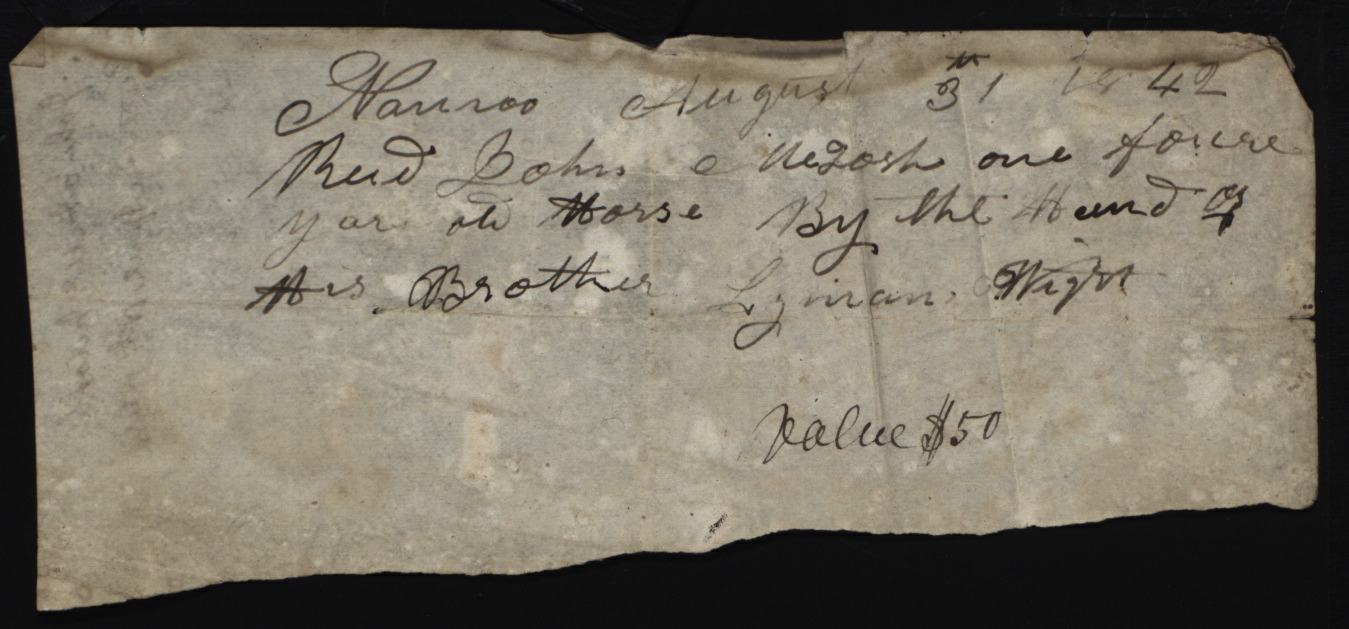 Nauvoo August 31th 1842
Recd John Mclosh one foure
yar old Horse By the Hand of
His Brother Lyman Wight
Value $50